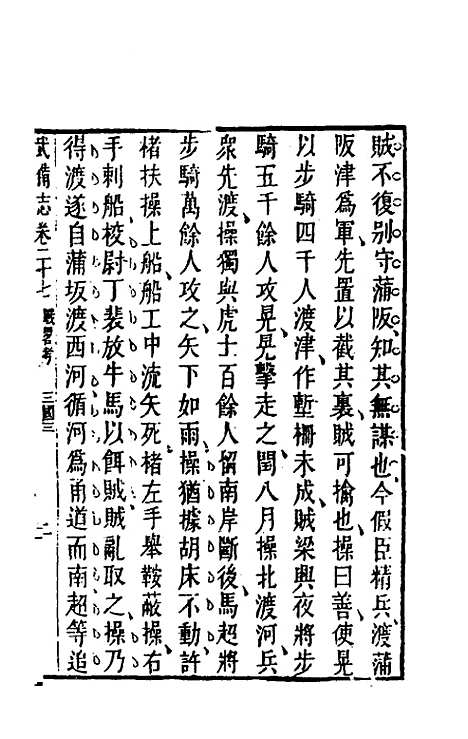 賊不復别守蒲阪知其無謀也今假臣精兵渡蒲
阪津爲軍先置以截其裏賊可擒也操曰善使晃
以步騎四千人渡津作塹柵未成賊梁興夜將步
騎五千餘人攻晃晃擊走之閏八月操北渡河兵
衆先渡操獨與虎士百餘人留南岸斷後馬超將
步騎萬餘人攻之矢下如雨操猶據胡床不動許
楮扶操上船船工中流矢死楮左手舉鞍蔽操右
手刺船校尉丁裴放牛馬以餌賊賊亂取之操乃
得渡遂自蒲坂渡西河循河爲甬道而南超等追
武備志卷二十七 戰畧考 三國三 二